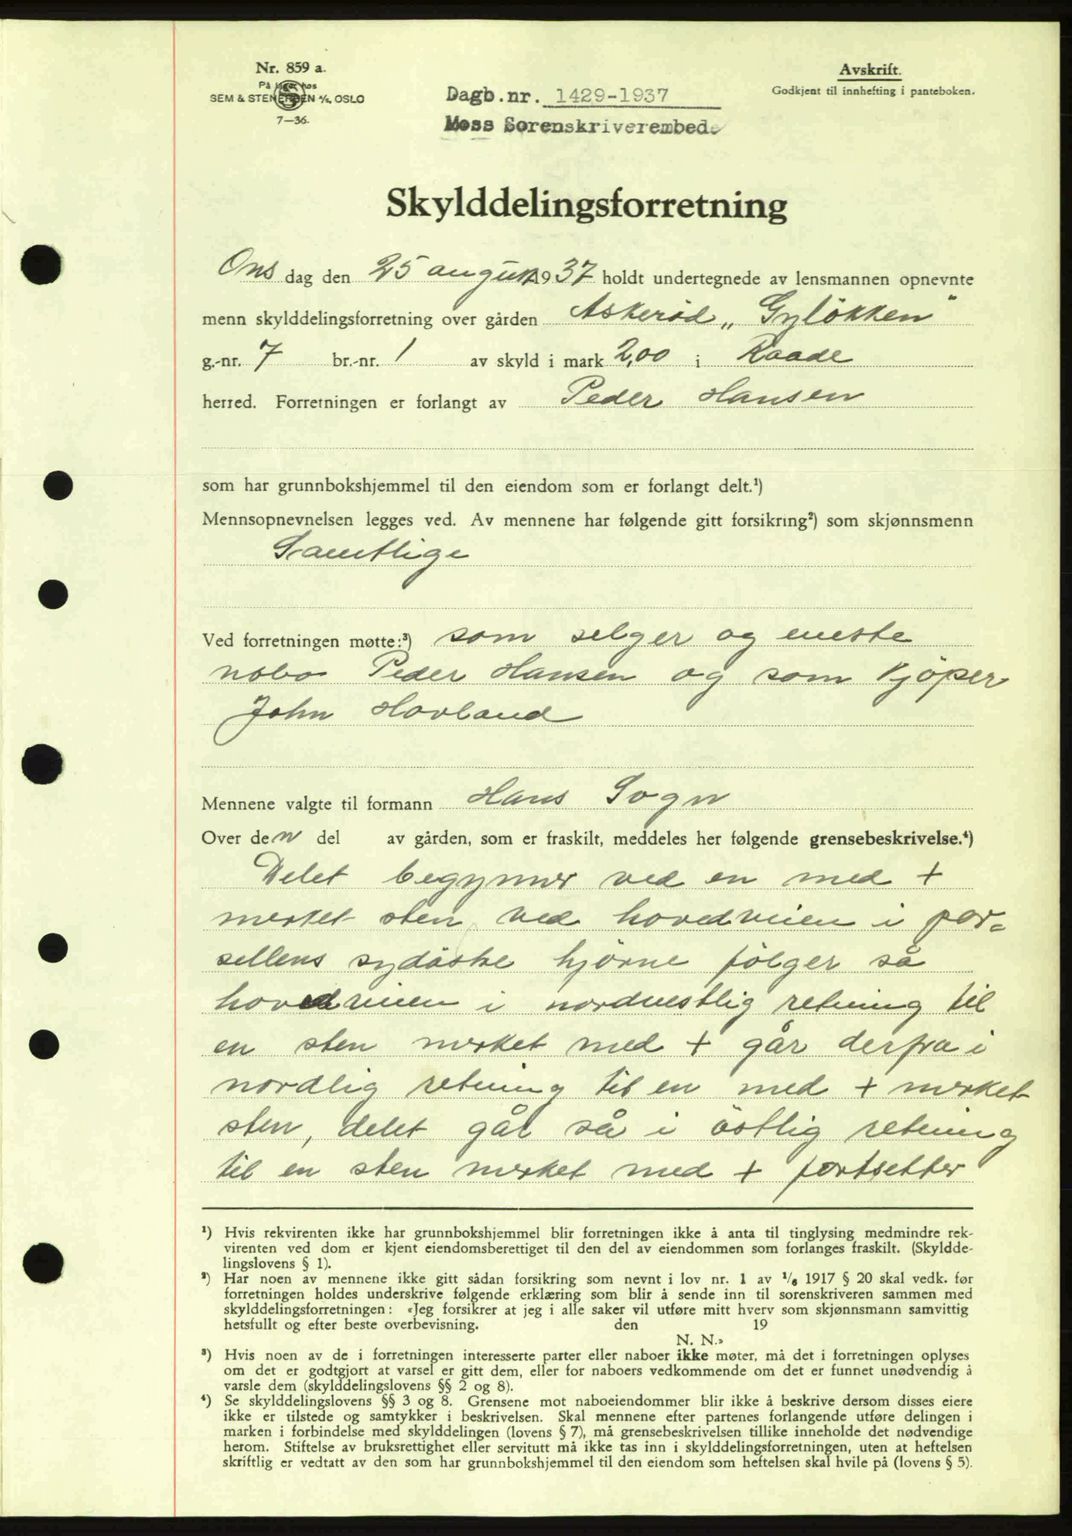 Nr. 859 a.
På lager hos
SEM & STENERSEN A/S, OSLO
7—36.
Dagb.nr. 1429-1937
Moss Sorenskriverembede
Avskrift.
Godkjent til innhefting i panteboken.
Skylddelingsforretning
Ons dag den 25 august 1937 holdt undertegnede av lensmannen opnevnte
menn skylddelingsforretning over gården Askerød „Gyløkken"
g.-nr. 7 br.-nr. 1 av skyld i mark 2,00 i Raade
herred. Forretningen er forlangt av Peder Hansen
som har grunnbokshjemmel til den eiendom som er forlangt delt.¹)
Mennsopnevnelsen legges ved. Av mennene har følgende gitt forsikring²) som skjønnsmenn
Samtlige
Ved forretningen møtte:³) som selger og eneste
nabo Peder Hansen og som kjøper
John Hovland
Mennene valgte til formann Hans Sogn
Over den del av gården, som er fraskilt, meddeles her følgende grensebeskrivelse.⁴)
Delet begynner ved en med +
merket sten ved hovedveien i par=
sellens sydöstre hjörne følger så
hovedveien i nordvestlig retning til
en sten merket med + går derfra i
nordlig retning til en med + merket
sten, delet går så i östlig retning
til en sten merket med + fortsetter
¹) Hvis rekvirenten ikke har grunnbokshjemmel blir forretningen ikke å anta til tinglysing medmindre rek-
virenten ved dom er kjent eiendomsberettiget til den del av eiendommen som forlanges fraskilt. (Skyldde-
lingslovens § 1).
²) Har noen av mennene ikke gitt sådan forsikring som nevnt i lov nr. 1 av 1/6 1917 § 20 skal vedk. før
forretningen holdes underskrive følgende erklæring som blir å sende inn til sorenskriveren sammen med
skylddelingsforretningen: «Jeg forsikrer at jeg i alle saker vil utføre mitt hverv som skjønnsmann samvittig
hetsfullt og efter beste overbevisning. den 19
N. N.»
³) Hvis noen av de i forretningen interesserte parter eller naboer ikke møter, må det i forretningen oplyses
om det er godtgjort at varsel er gitt dem, eller for naboers vedkommende om det er funnet unødvendig å
varsle dem (skylddelingslovens §§ 2 og 8).
⁴) Se skylddelingslovens §§ 3 og 8. Grensene mot naboeiendommer blir ikke å beskrive dersom disses eiere
ikke er tilstede og samtykker i beskrivelsen. Skal mennene efter partenes forlangende utføre delingen i
marken i forbindelse med skylddelingen (lovens § 7), må grensebeskrivelsen tillike inneholde det nødvendige
herom. Stiftelse av bruksrettighet eller servitutt må ikke tas inn i skylddelingsforretningen, uten at heftelsen
skriftlig er vedtatt av den som har grunnbokshjemmel til den eiendom som heftelsen skal hvile på (lovens § 5).